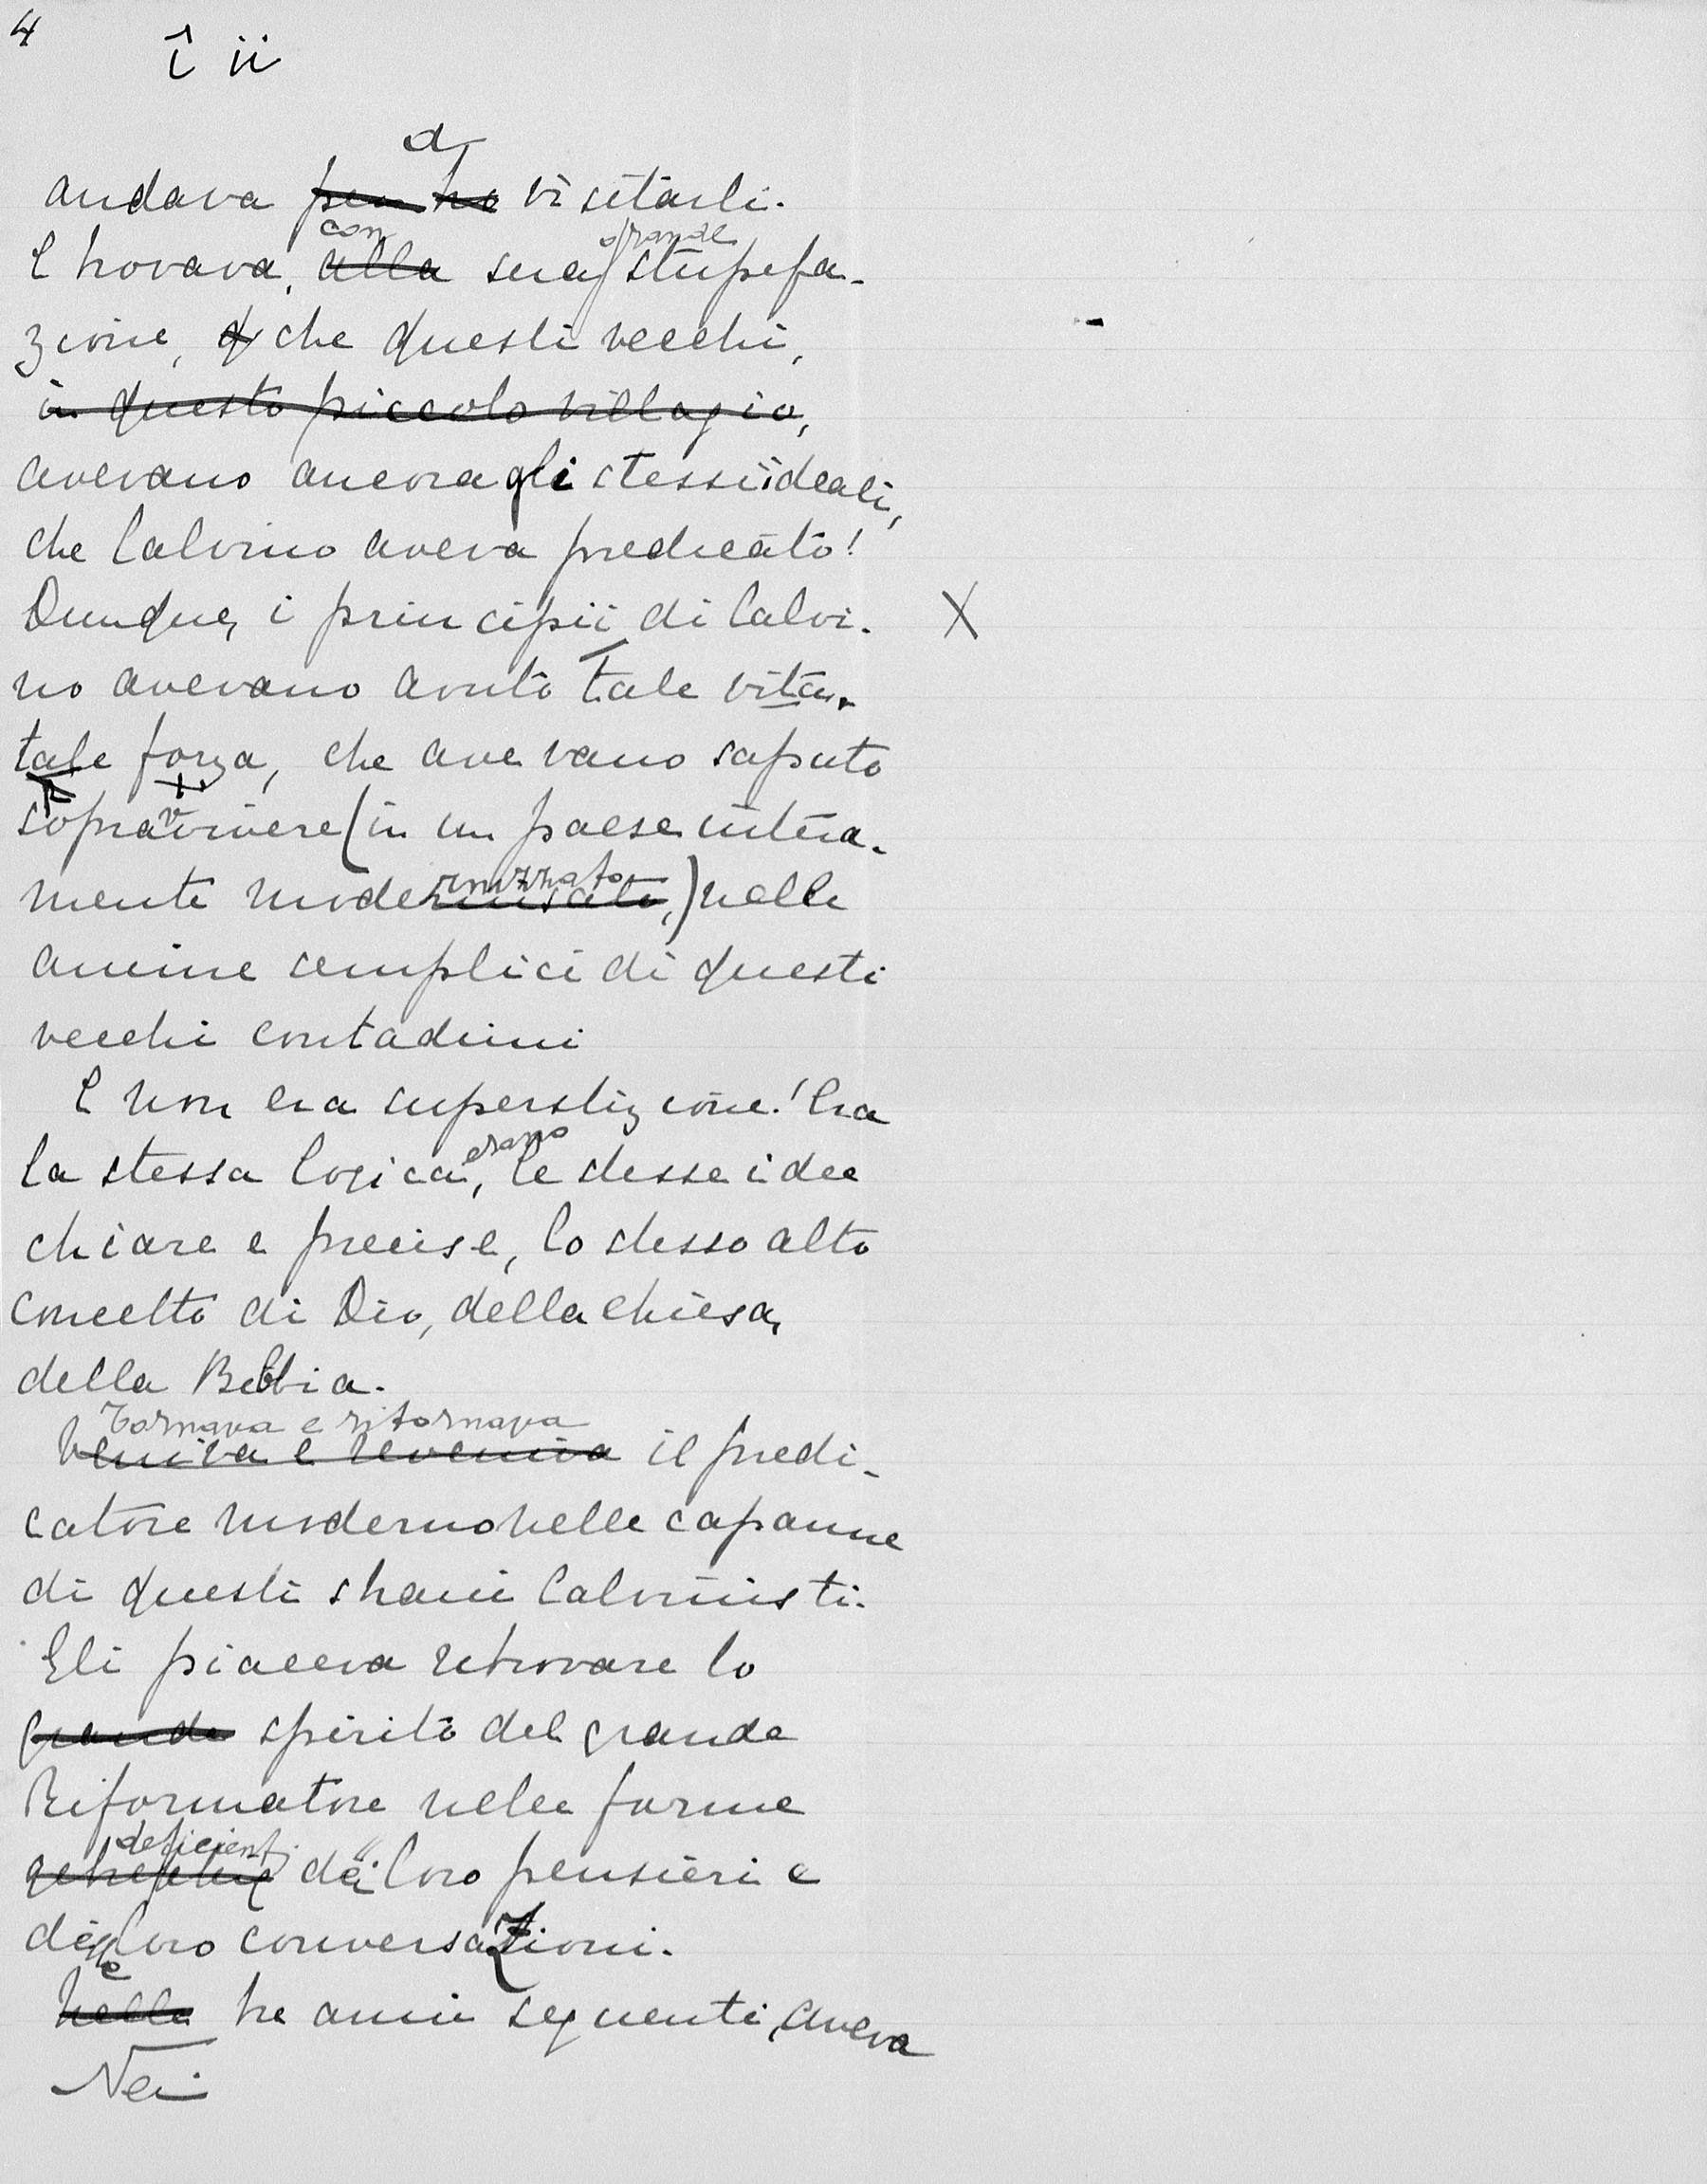 4
î ii
a
andava per tro visitarli.
con grande
E trovava, alla sua stupefa-
zione, che questi vecchi,
in questo piccolo villagio,
avevano ancora gli stessi ideali,
che Calvino aveva predicato!
Dunque, i principii di Calvi- X
no avevano avuto tale vita,
tale forza, che avevano saputo
sopravvivere (in un paese intera-
rnizzato
mente modernisato,) nelle
anime semplici di questi
vecchi contadini
E non era superstizione! Era
erano
la stessa logica, le stesse idee
chiare e precise, lo stesso alto
concetto di Dio, della chiesa,
della Bibbia.
Tornava e ritornava
Veniva e reveniva il predi-
catore moderno nelle capanne
di questi strani Calvinisti.
Gli piaceva ritrovare lo
grande spirito del grande
Riformatore nelle forme
deficienti
dei loro pensieri e
delle loro conversazioni.
Nelle tre anni seguenti, aveva
Nei